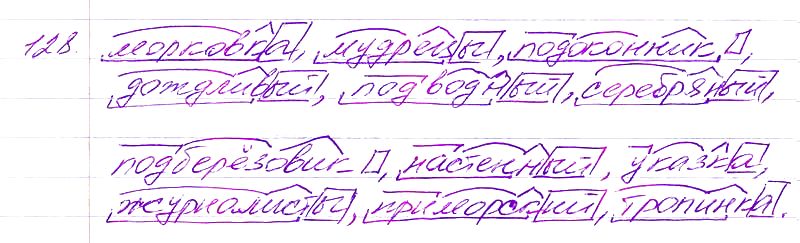 128. морковка, мудрецы, подоконник,
дождливый, подводный, серебряный,
подберёзовик, настенный, указка,
журналисты, приморский, тропинка.